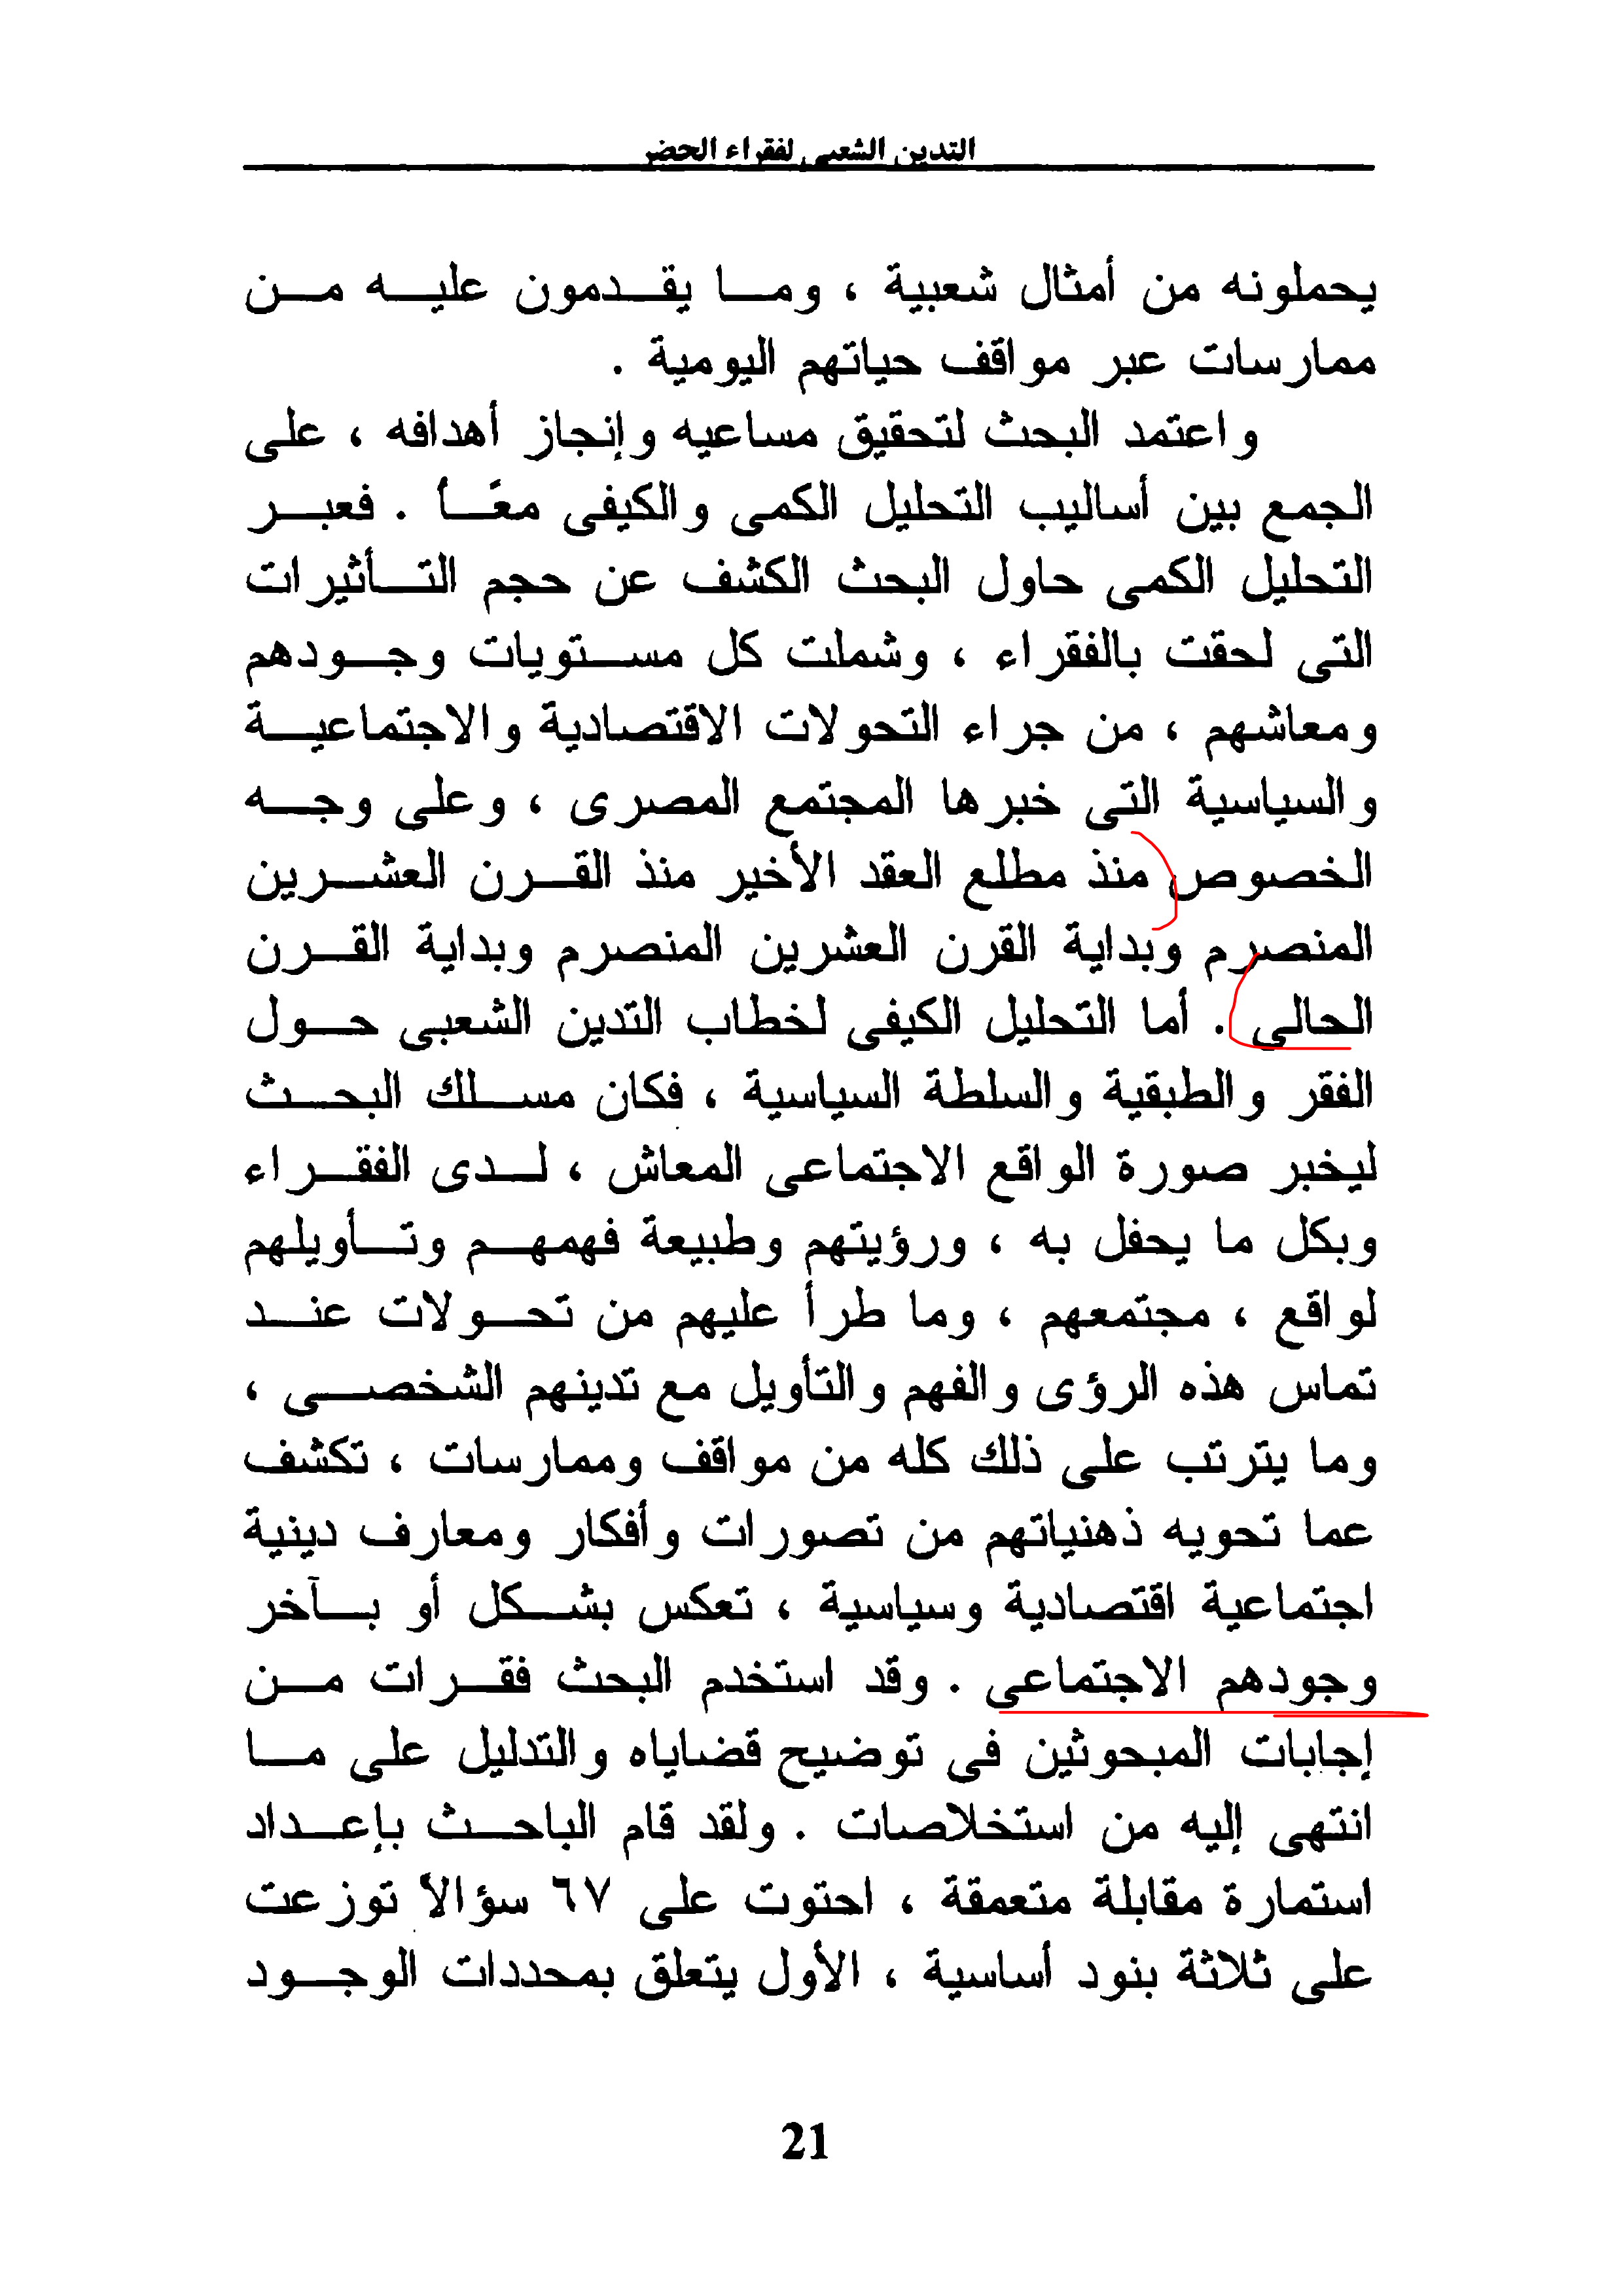 التدين الشعبى لفقراء الحضر
يحملونه من أمثال شعبية ، وما يقدمون عليه من
ممارسات عبر مواقف حياتهم اليومية .
واعتمد البحث لتحقيق مساعيه وإنجاز أهدافه ، على
الجمع بين أساليب التحليل الكمى والكيفى معًا . فعبر
التحليل الكمى حاول البحث الكشف عن حجم التأثيرات
التى لحقت بالفقراء ، وشملت كل مستويات وجودهم
ومعاشهم ، من جراء التحولات الاقتصادية والاجتماعية
والسياسية التى خبرها المجتمع المصرى ، وعلى وجه
الخصوص منذ مطلع العقد الأخير منذ القرن العشرين
المنصرم وبداية القرن العشرين المنصرم وبداية القرن
الحالى . أما التحليل الكيفى لخطاب التدين الشعبى حول
الفقر والطبقية والسلطة السياسية ، فكان مسلك البحث
ليخبر صورة الواقع الاجتماعى المعاش ، لدى الفقراء
وبكل ما يحفل به ، ورؤيتهم وطبيعة فهمهم وتأويلهم
لواقع ، مجتمعهم ، وما طرأ عليهم من تحولات عند
تماس هذه الرؤى والفهم والتأويل مع تدينهم الشخصى ،
وما يترتب على ذلك كله من مواقف وممارسات ، تكشف
عما تحويه ذهنياتهم من تصورات وأفكار ومعارف دينية
اجتماعية اقتصادية وسياسية ، تعكس بشكل أو بآخر
وجودهم الاجتماعى . وقد استخدم البحث فقرات من
إجابات المبحوثين فى توضيح قضاياه والتدليل على ما
انتهى إليه من استخلاصات . ولقد قام الباحث بإعداد
استمارة مقابلة متعمقة ، احتوت على ٦٧ سؤالاً توزعت
على ثلاثة بنود أساسية ، الأول يتعلق بمحددات الوجود
21